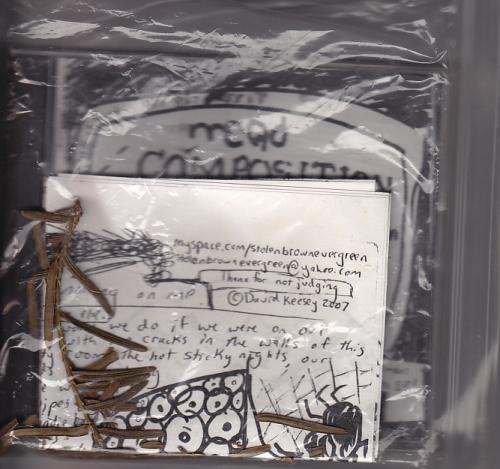 mead
COMPOSITION
myspace.com/stolenbrownevergreen
stolenbrownevergreen@yahoo.com
Thanx for not judging
on me.
©David Keesey 2007
we do if we were on our
with cracks in the walls of this
room. The hot sticky nights, our